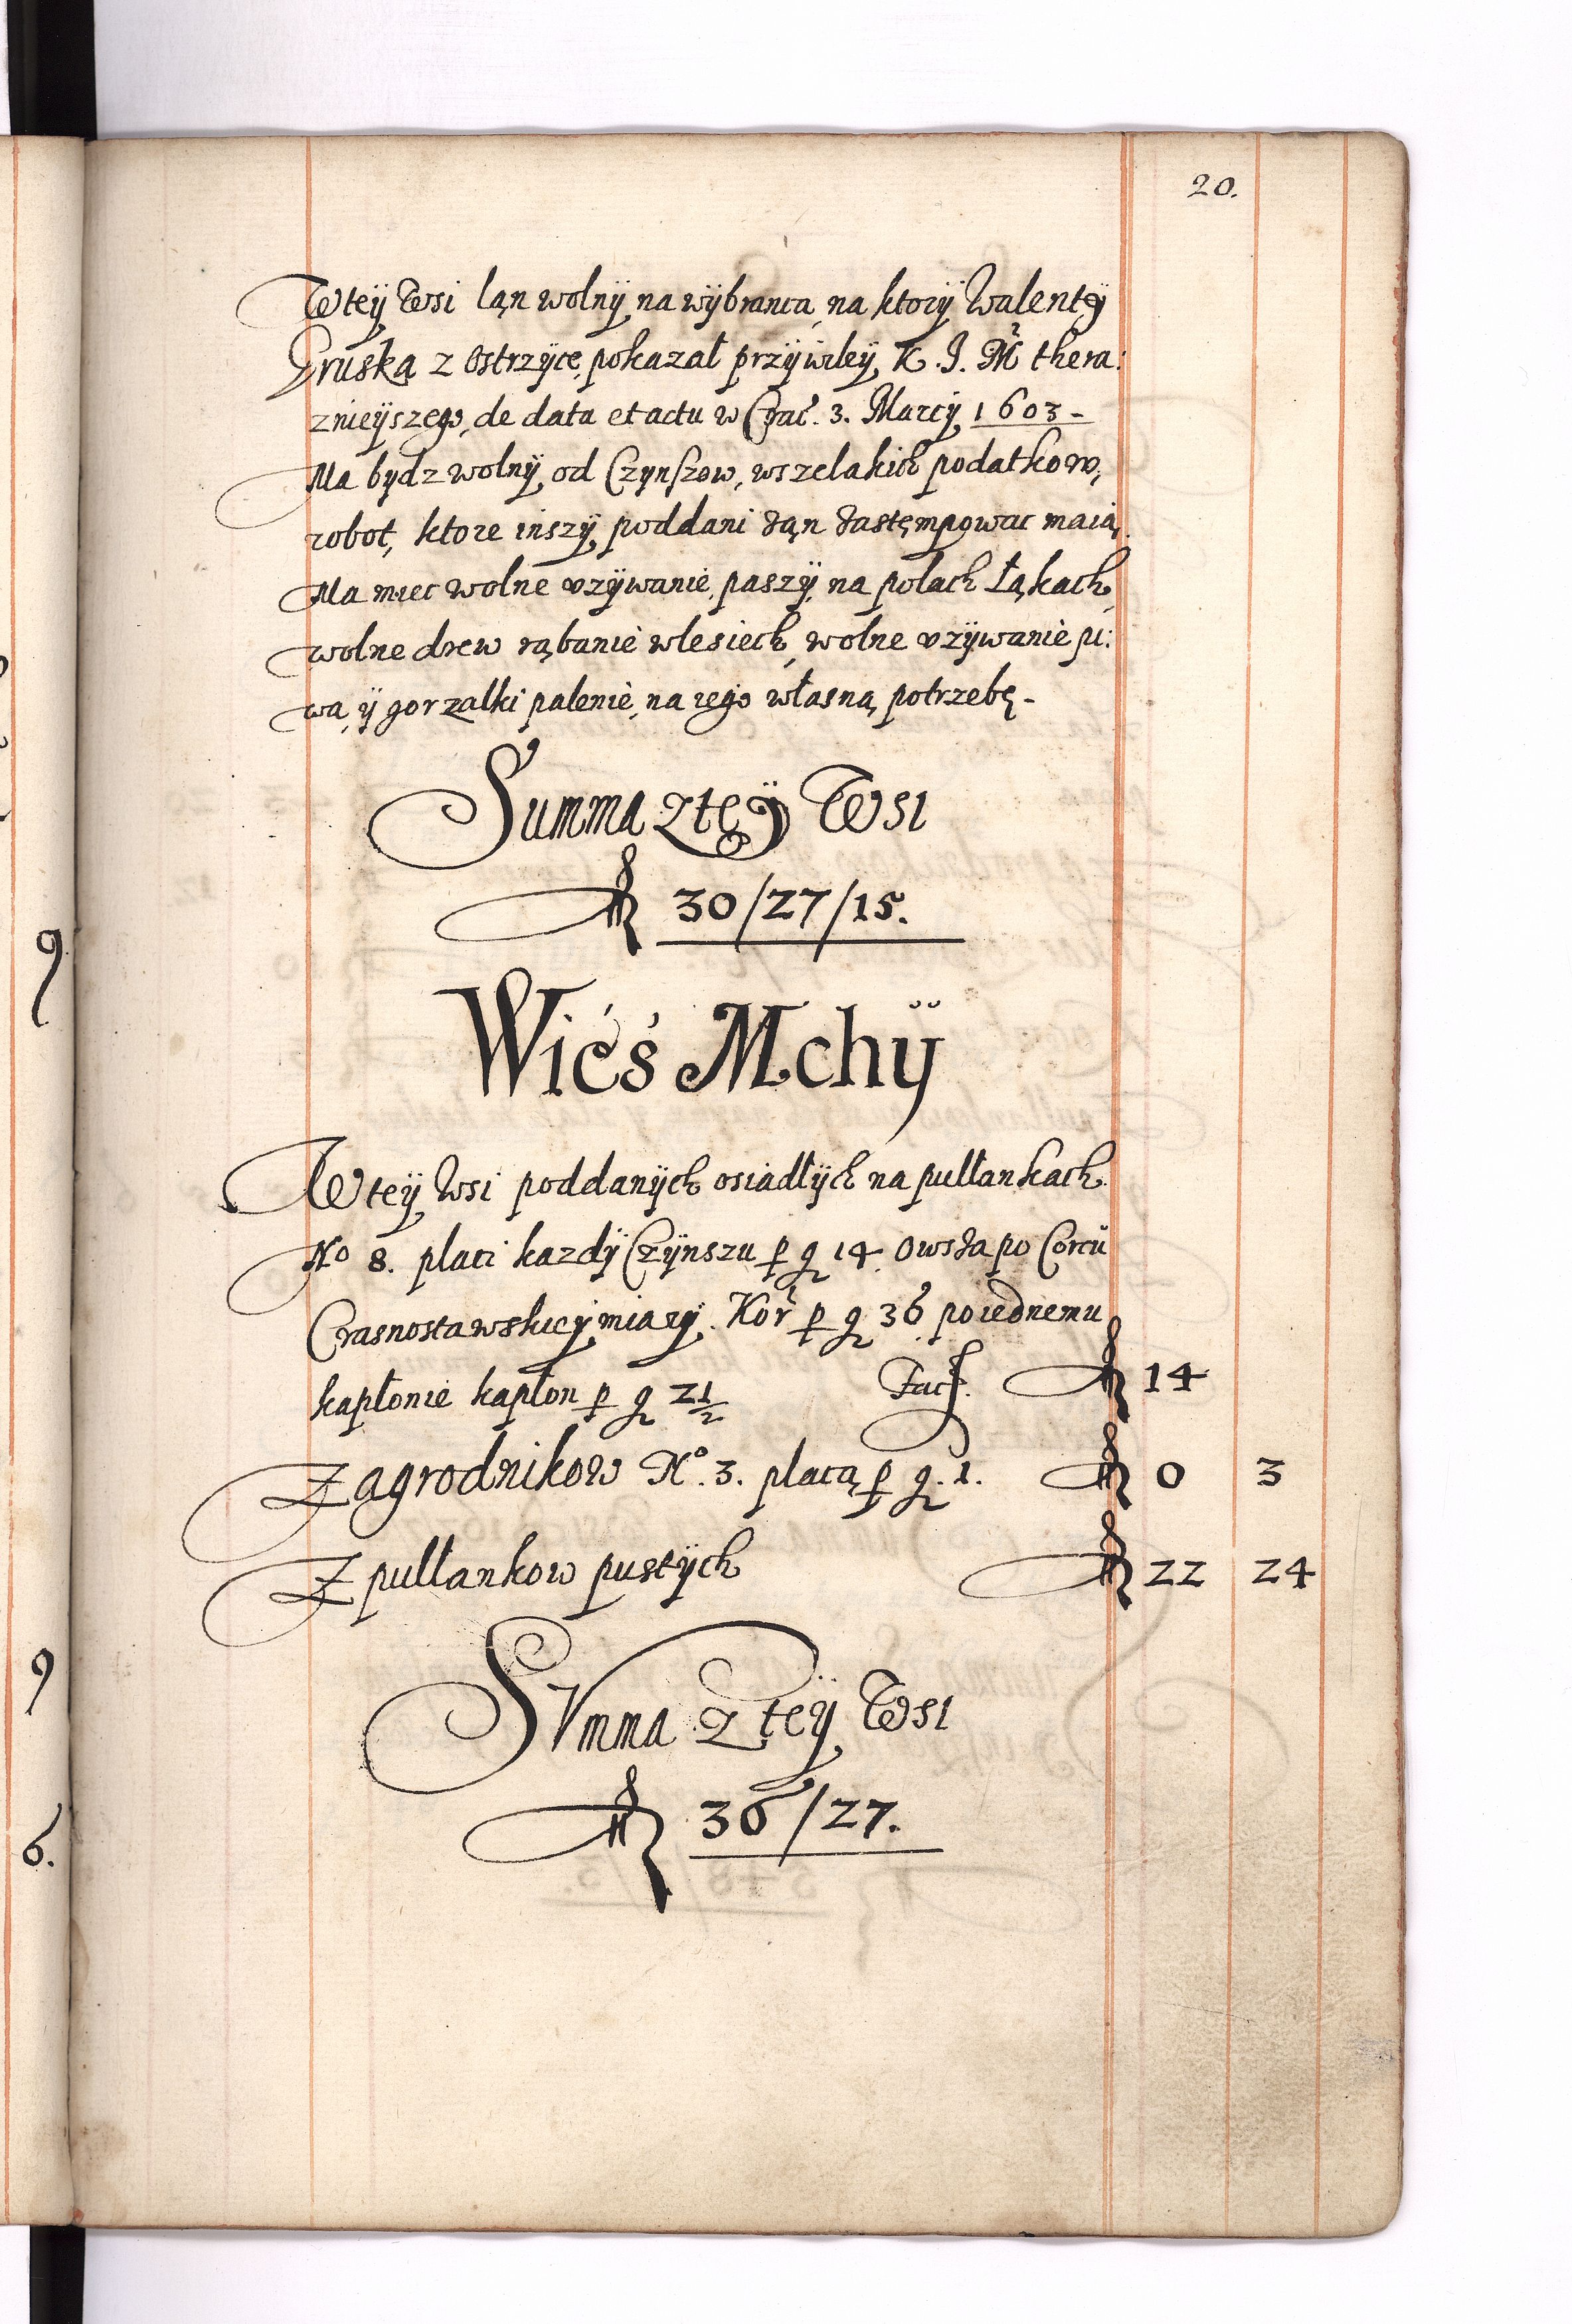 20.
W teÿ Wsi lan wolnÿ na wÿbranca, na ktorÿ Walentÿ
Gruska z Ostrzÿce, pokazał przÿwileÿ K. J. Mci thera:
znieÿszego, de data et actu w Crac. 3. Marcij 1603 -
Ma bydz wolnÿ od Czynszow, wszelakich podatkow,
robot, ktore inszÿ poddani zan zastempowac maią.
Ma miec wolne vzÿwanie paszÿ, na polach Łąkach,
wolne drew rąbanie w lesiech, wolne vzÿwanie pi:
wa, ÿ gorzalki palenie, na iego własną potrzebę -
Summa z teÿ Wsi
fl 30/27/15.
Wieś Mchÿ
W teÿ Wsi poddanÿch osiadłÿch na pułłankach
No 8. placi kazdÿ Czÿnszu p gr 14. Owsa po Corcu
Crasnostawskieÿ miarÿ. Kor p gr 36 po iednemu
kapłonie kapłon p gr 2 1/2 Facit. fl 14
Zagrodnikow No. 3. placą p gr. 1. fl 0 3
Z pułłankow pustÿch fl 22 24
SVmma z teÿ Wsi
fl 36/27.
9
9
6.